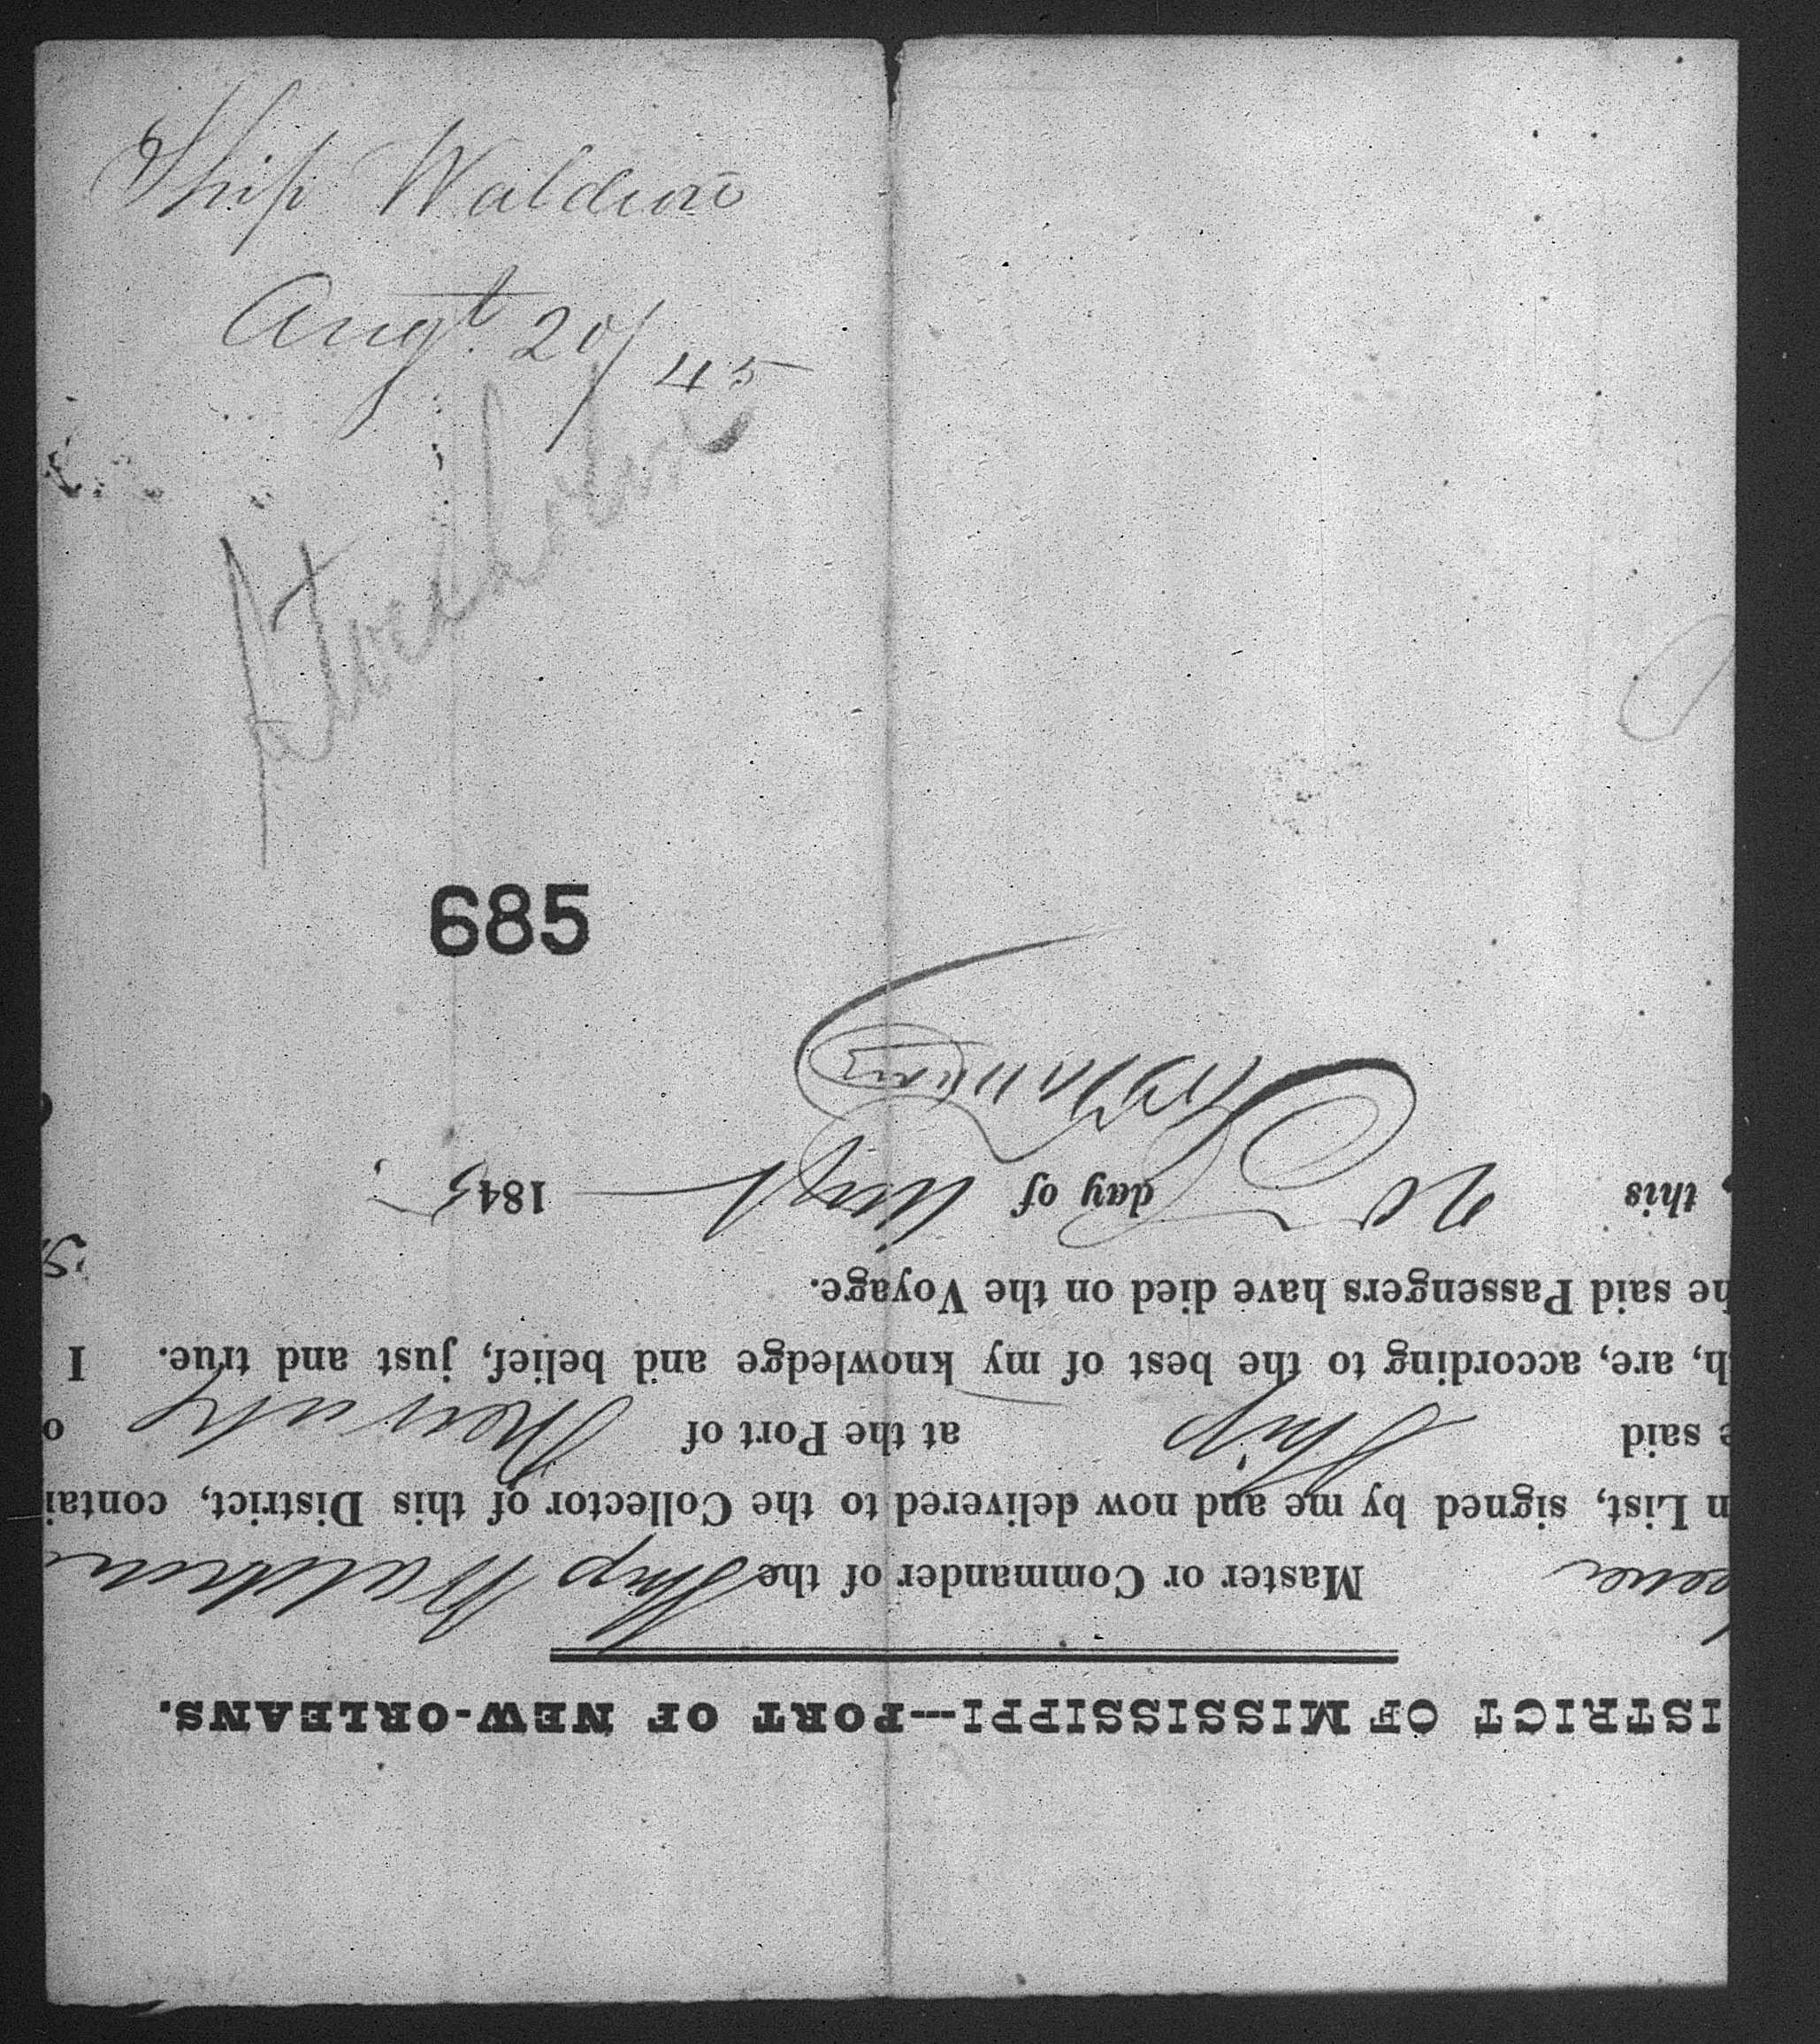 Ship Waldron
Augt 20/45
Stockholm
685
ISTRICT OF MISSISSIPPI---PORT OF NEW-ORLEANS.
Master or Commander of the Ship Waldron
n List, signed by me and now delivered to the Collector of this District, contai
e said Ship at the Port of o
h, are, according to the best of my knowledge and belief, just and true. I
he said Passengers have died on the Voyage.
this 20 day of Augt 1845